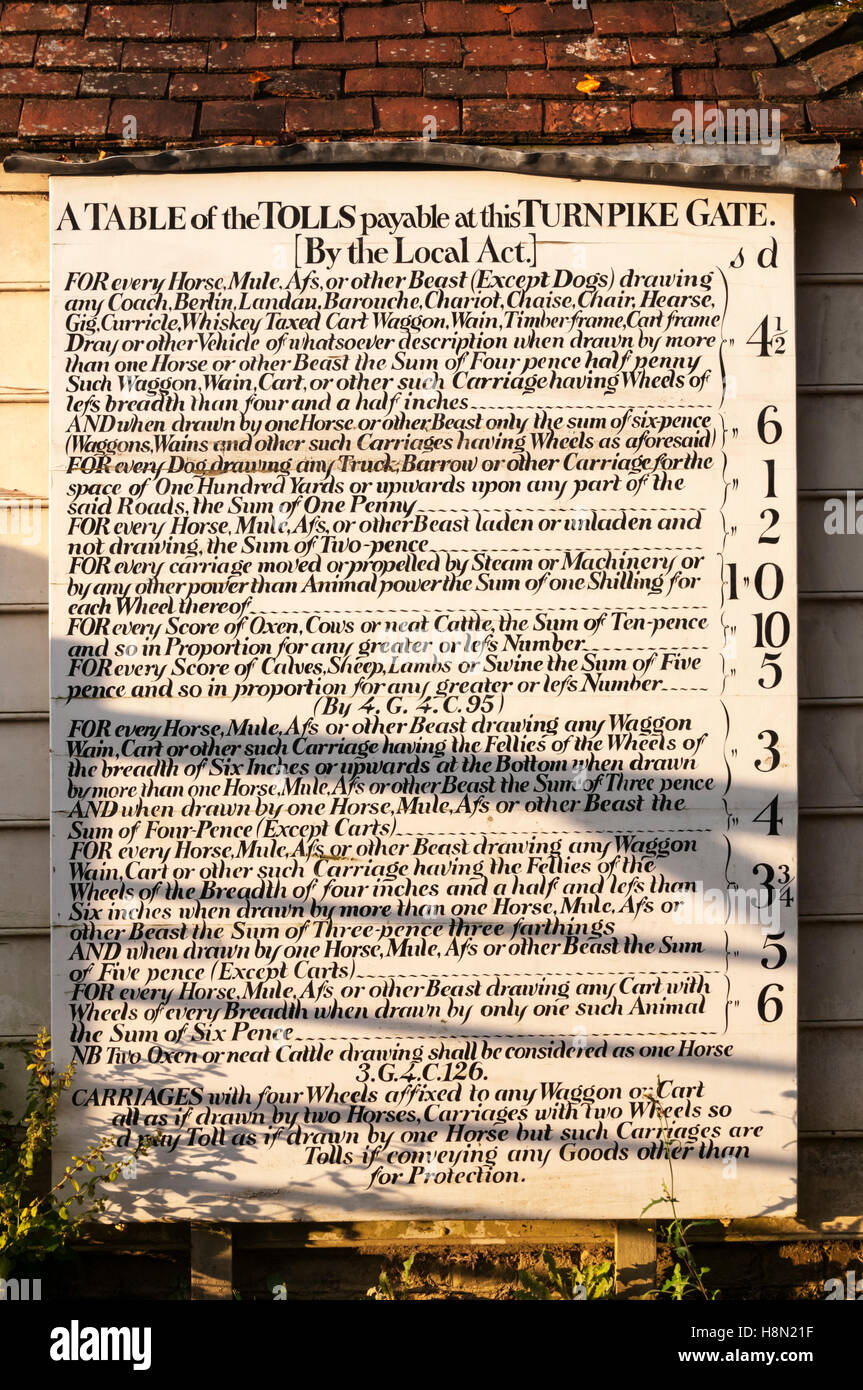 A TABLE of the TOLLS payable at this TURNPIKE GATE.
[By the Local Act.] s d
FOR every Horse, Mule, Afs, or other Beast (Except Dogs) drawing
any Coach, Berlin, Landau, Barouche, Chariot, Chaise, Chair, Hearse,
Gig, Curricle, Whiskey Taxed Cart Waggon, Wain, Timber-frame, Cart frame
Dray or other Vehicle of whatsoever description when drawn by more " 4 1/2
than one Horse or other Beast the Sum of Four pence half penny
Such Waggon, Wain, Cart, or other such Carriage having Wheels of
lefs breadth than four and a half inches
AND when drawn by one Horse or other Beast only the sum of six-pence " 6
(Waggons, Wains and other such Carriages having Wheels as aforesaid)
FOR every Dog drawing any Truck, Barrow or other Carriage for the
space of One Hundred Yards or upwards upon any part of the " 1
said Roads, the Sum of One Penny
FOR every Horse, Mule, Afs, or other Beast laden or unladen and " 2
not drawing, the Sum of Two-pence
FOR every carriage moved or propelled by Steam or Machinery or
by any other power than Animal power the Sum of one Shilling for 1 " 0
each Wheel thereof
FOR every Score of Oxen, Cows or neat Cattle, the Sum of Ten-pence " 10
and so in Proportion for any greater or lefs Number
FOR every Score of Calves, Sheep, Lambs or Swine the Sum of Five " 5
pence and so in proportion for any greater or lefs Number
(By 4. G. 4. C. 95)
FOR every Horse, Mule, Afs or other Beast drawing any Waggon
Wain, Cart or other such Carriage having the Fellies of the Wheels of
the breadth of Six Inches or upwards at the Bottom when drawn " 3
by more than one Horse, Mule, Afs or other Beast the Sum of Three pence
AND when drawn by one Horse, Mule, Afs or other Beast the " 4
Sum of Four-Pence (Except Carts)
FOR every Horse, Mule, Afs or other Beast drawing any Waggon
Wain, Cart or other such Carriage having the Fellies of the
Wheels of the Breadth of four inches and a half and lefs than " 3 3/4
Six inches when drawn by more than one Horse, Mule, Afs or
other Beast the Sum of Three-pence three farthings
AND when drawn by one Horse, Mule, Afs or other Beast the Sum " 5
of Five pence (Except Carts)
FOR every Horse, Mule, Afs or other Beast drawing any Cart with
Wheels of every Breadth when drawn by only one such Animal " 6
the Sum of Six Pence
NB Two Oxen or neat Cattle drawing shall be considered as one Horse
3. G. 4. C. 126.
CARRIAGES with four Wheels affixed to any Waggon or Cart
all as if drawn by two Horses, Carriages with two Wheels so
d pay Toll as if drawn by one Horse but such Carriages are
Tolls if conveying any Goods other than
for Protection.
alamy
Image ID: H8N21F
www.alamy.com